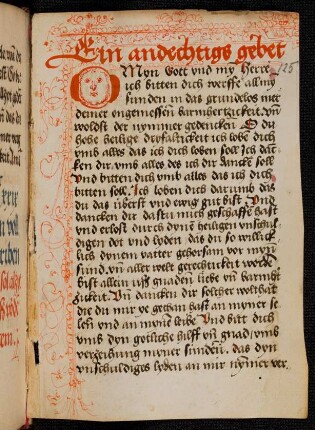 Ein andechtigs gebet
125
O Myn Gott vnd my Herre
ich bitten dich werffe all my
sunden in das grundelos mer
deiner vngemessen barmhertzickeit vn
woldst der nymmer gedencken O du
hohe heilige dryfaltickeit ich lobe dich
vmb alles das ich dich loben soll Ich dan
cken dir vmb alles des ich dir dancke soll
Vnd bitten dich vmb alles das ich dich
bitten soll. Ich loben dich darumb das
du das oberst vnd ewig gut bist Vnd
dancken dir das tu mich geschaffe hast
vnd erlost durch dyne heiligen vnschul
digen dot vnd lyden das du so willick
lich dynem vatter gehorsam vor myn
sund vn aller welt gerechtickeit worde
bist allein vss gnaden liebe vn barmh
tzickeit Vn dancken dir solcher wolthat
die du mir ye gethan hast an myner se
len vnd an mynē leibe Vnd bitt dich
vmb dyn gotliche hilff vn gnad vmb
verzeihung myner sunden. das dyn
vnschuldiges lyden an mir nymer ver